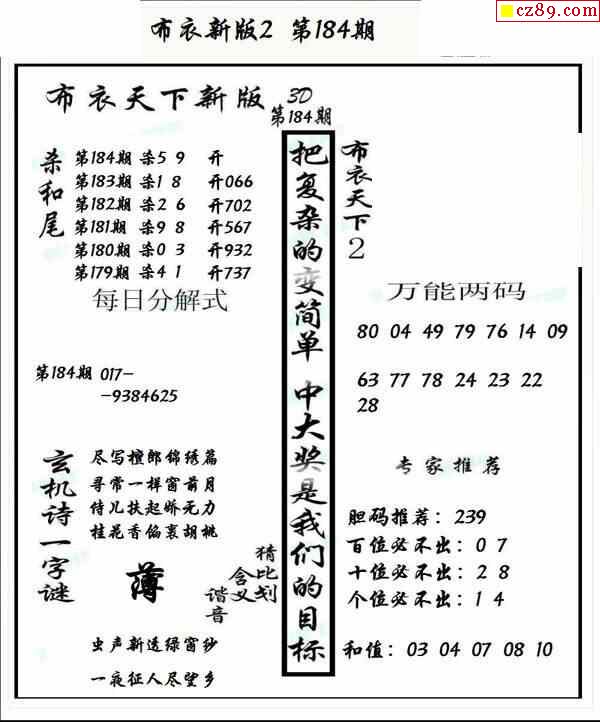 cz89.com
布衣新版2 第184期
布衣天下新版 3D
第184期
杀和尾
第184期 杀5 9 开
第183期 杀1 8 开066
第182期 杀2 6 开702
第181期 杀9 8 开567
第180期 杀0 3 开932
第179期 杀4 1 开737
每日分解式
第184期 017-
-9384625
玄机诗一字谜
尽写檀郎锦绣篇
寻常一样窗前月
侍儿扶起娇无力
桂花香馅裹胡桃
薄
猜比划
含义
谐音
虫声新透绿窗纱
一夜征人尽望乡
把复杂的变简单 中大奖是我们的目标
布衣天下2
万能两码
80 04 49 79 76 14 09
63 77 78 24 23 22
28
专家推荐
胆码推荐：239
百位必不出：0 7
十位必不出：2 8
个位必不出：1 4
和值：03 04 07 08 10